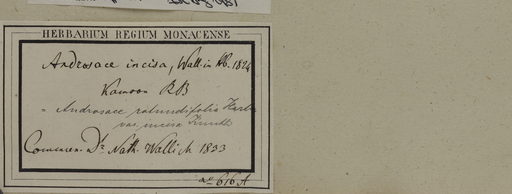 HERBARIUM REGIUM MONACENSE
Androsace incisa, Wall. in Hb. 1824
Kamoon RB
= Androsace rotundifolia Hardw.
var. incisa Knuth
Commun. Dr. Nath. Wallich 1833
no 616 A